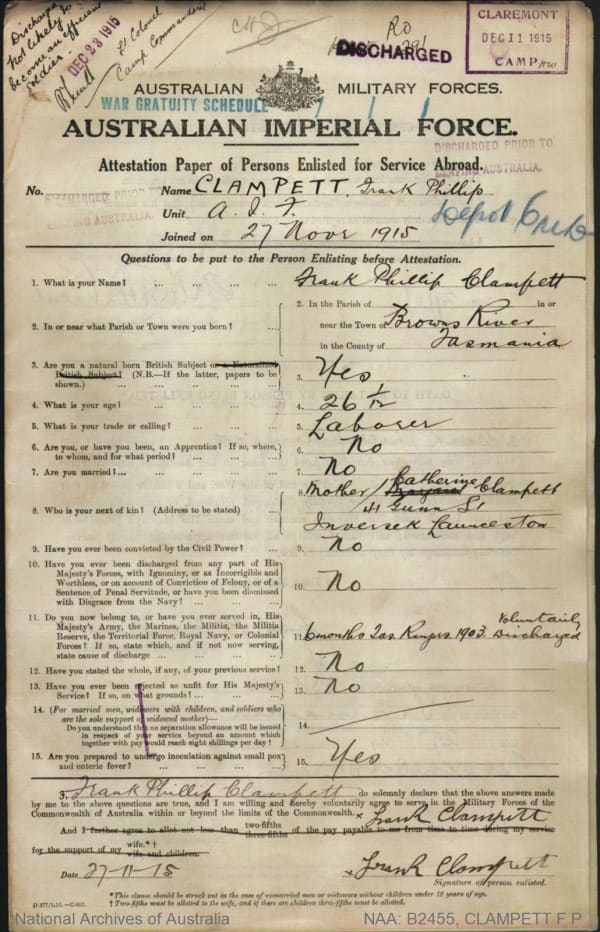 Discharged
not likely to
become an efficient
soldier.
DEC 23 1915
Lt Colonel
Camp Commandant
R0
DISCHARGED
CLAREMONT
DEC 11 1915
CAMP
AUSTRALIAN MILITARY FORCES.
WAR GRATUITY SCHEDULE
AUSTRALIAN IMPERIAL FORCE.
DISCHARGED PRIOR TO
LEAVING AUSTRALIA.
Attestation Paper of Persons Enlisted for Service Abroad.
No. Name CLAMPETT, Frank Phillip
DISCHARGED PRIOR TO
LEAVING AUSTRALIA.
Unit A. I. F. Depot
Joined on 27 Novr 1915
Questions to be put to the Person Enlisting before Attestation.
1. What is your Name? ... ... ... ... Frank Phillip Clampett
2. In or near what Parish or Town were you born? ... ...
2. In the Parish of in or
near the Town of Browns River
in the County of Tasmania
3. Are you a natural born British Subject or a Naturalized
British Subject? (N.B.—If the latter, papers to be
shown.) ... ... ... ...
3. Yes
4. What is your age? ... ... ... ... 4. 26 1/12
5. What is your trade or calling? ... ... ... 5. Laborer
6. Are you, or have you been, an Apprentice? If so, where,
to whom, and for what period? ... ... ...
6. No
7. Are you married?... ... ... ... 7. No
8. Who is your next of kin? (Address to be stated) ...
8. Mother / Catherine Clampett
41 Gunn St
Inveresk Launceston
9. Have you ever been convicted by the Civil Power? ... 9. No
10. Have you ever been discharged from any part of His
Majesty's Forces, with Ignominy, or as Incorrigible and
Worthless, or on account of Conviction of Felony, or of a
Sentence of Penal Servitude, or have you been dismissed
with Disgrace from the Navy? ... ... ...
10. No
11. Do you now belong to, or have you ever served in, His
Majesty's Army, the Marines, the Militia, the Militia
Reserve, the Territorial Force, Royal Navy, or Colonial
Forces? If so, state which, and if not now serving,
state cause of discharge ... ... ...
11. 6 months Tas Rangers 1903. Voluntarily Discharged
12. Have you stated the whole, if any, of your previous service? 12. No
13. Have you ever been rejected as unfit for His Majesty's
Service? If so, on what grounds? ... ...
13. No
14. (For married men, widowers with children, and soldiers who
are the sole support of widowed mother)—
Do you understand that no separation allowance will be issued
in respect of your service beyond an amount which
together with pay would reach eight shillings per day?
14.
15. Are you prepared to undergo inoculation against small pox
and enteric fever? ... ... ...
15. Yes
I, Frank Phillip Clampett do solemnly declare that the above answers made
by me to the above questions are true, and I am willing and hereby voluntarily agree to serve in the Military Forces of the
Commonwealth of Australia within or beyond the limits of the Commonwealth. × Frank Clampett
And I further agree to allot not less than two-fifths three-fifths of the pay payable to me from time to time during my service
for the support of my wife.*† wife and children.
Date 27-11-15 × Frank Clampett
Signature of person enlisted.
*This clause should be struck out in the case of unmarried men or widowers without children under 18 years of age.
† Two-fifths must be allotted to the wife, and if there are children three-fifths must be allotted.
National Archives of Australia NAA: B2455, CLAMPETT F P